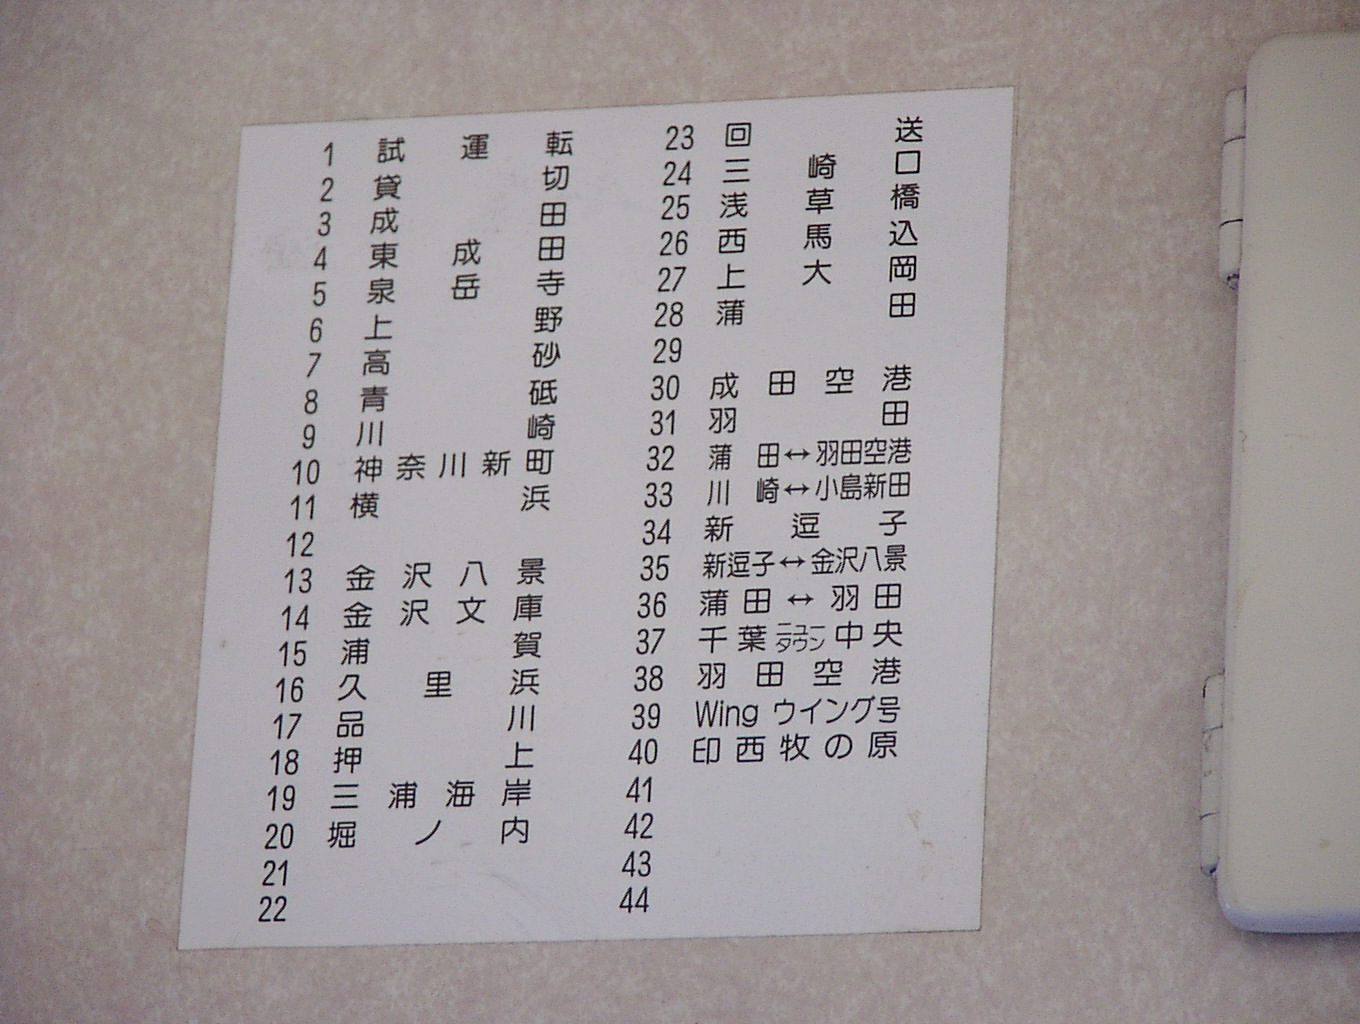 1 試運転
2 貸切
3 成田
4 東成田
5 泉岳寺
6 上野
7 高砂
8 青砥
9 川崎
10 神奈川新町
11 横浜
12
13 金沢八景
14 金沢文庫
15 浦賀
16 久里浜
17 品川
18 押上
19 三浦海岸
20 堀ノ内
21
22
23 回送
24 三崎口
25 浅草橋
26 西馬込
27 上大岡
28 蒲田
29
30 成田空港
31 羽田
32 蒲田↔羽田空港
33 川崎↔小島新田
34 新逗子
35 新逗子↔金沢八景
36 蒲田↔羽田
37 千葉ニュータウン中央
38 羽田空港
39 Wing ウイング号
40 印西牧の原
41
42
43
44